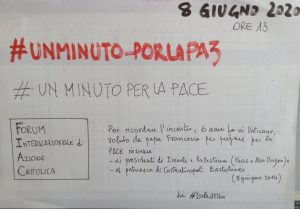 8 GIUGNO 2020
ORE 13
#UNMINUTO-PORLAPAZ
# UN MINUTO PER LA PACE
FORUM
INTERNAZIONALE di
AZIONE
CATTOLICA
Per ricordare l'incontro, 6 anni fa in Vaticano,
voluto da papa Francesco per pregare per la
PACE insieme
- ai presidenti di Israele e Palestina (Peres e Abu Mazen) e
- al patriarca di Costantinopoli Bartolomeo
(8 giugno 2014)